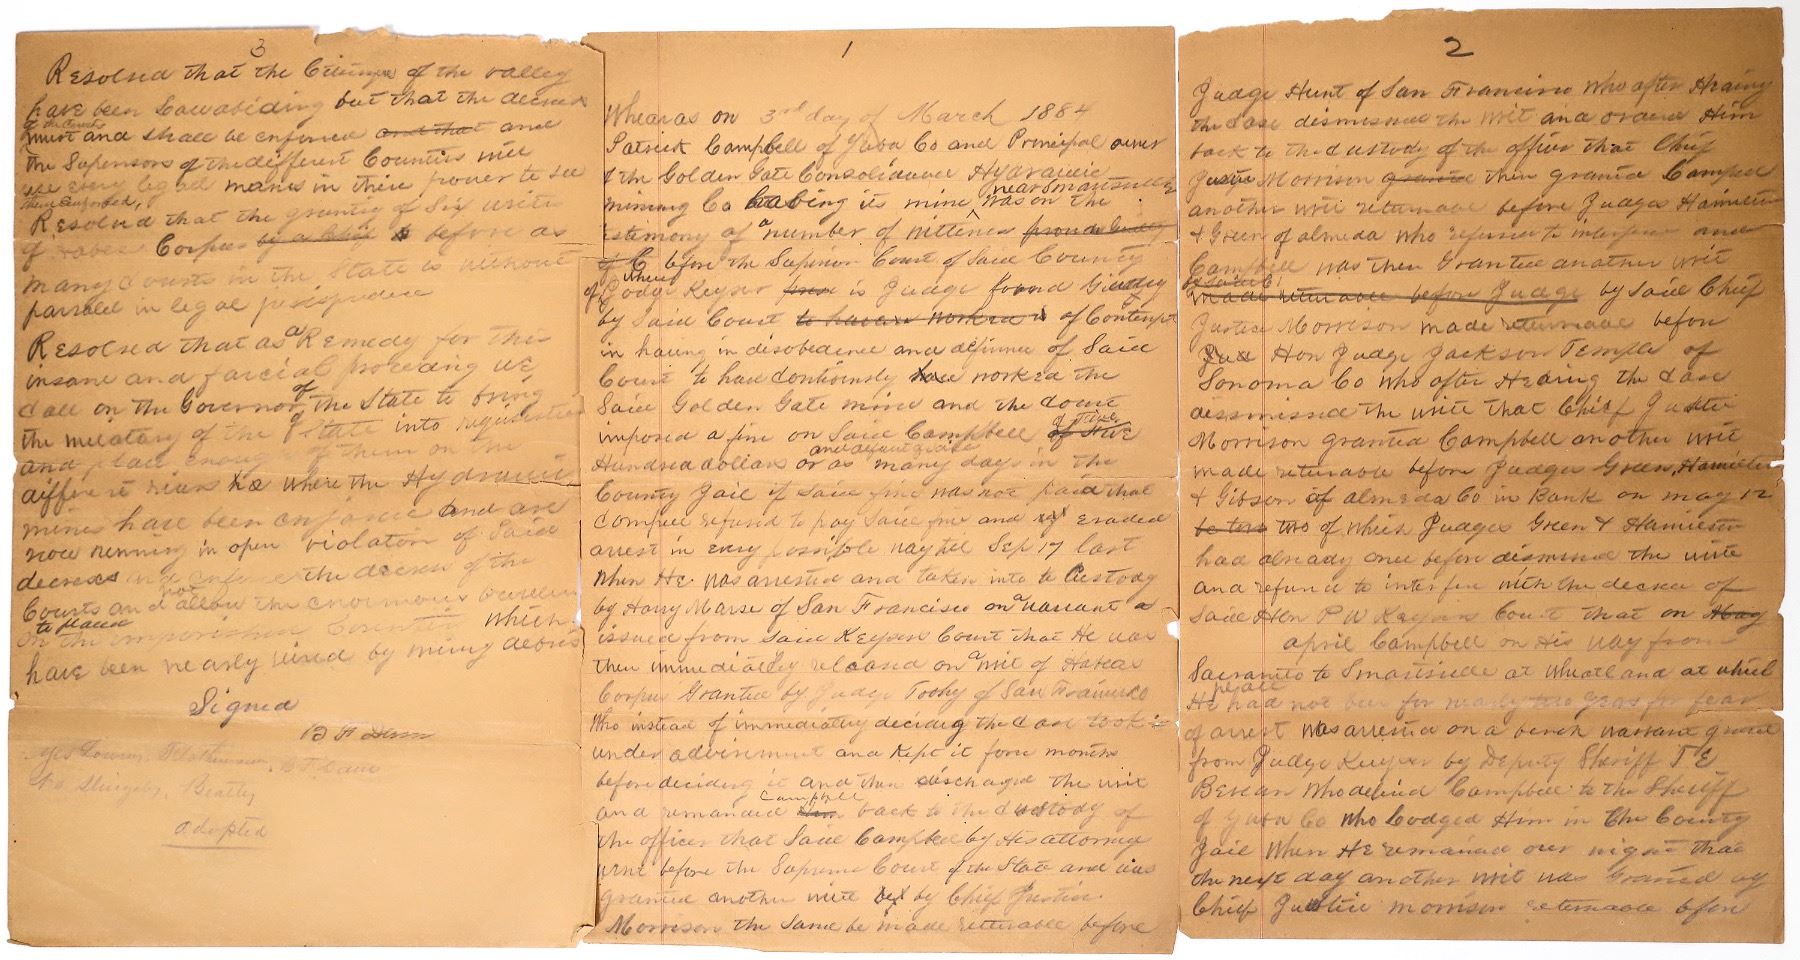 1
Whearas on 3rd day of March 1884
Patrick Campbell of Yuba Co and Principal owner
of the Golden Gate Consolidance Hydraulic
near Smartsville
mining Co being its mine was on the
testimony of a number of wittness from a
of C before the Superior Court of Said County
where
of Godge Keyser is Judge found Giulty
by Said Court to have worked is of Contempt
in having in disobedience and difience of Said
Court to had Continously have worked the
Said Golden Gate mine and the Court
imposed a fine on Said Campbell of Five
Hundred dollars or as many days in the
County Jail if Said fine was not paid that
Campbell refused to pay Said fine and evaded
arrest in every possible way til Sep 17 last
when He was arrested and taken into to Custody
by Harry Marse of San Francisco on a warrant
issued from Said Keysers Court that He was
then immediatelly released on a writ of Habeas
Corpus Granted by Judge Toohy of San Francisco
Who instead of immediatley deciding the Case took it
under advisement and Kept it four months
before deciding it and then discharged the writ
Campbell
and remanded him back to the Custody of
the officer that Said Campbell by His attorneys
went before the Supreme Court of the State and was
granted another write by Chief Justice
Morrison the Same be made returnable before
2
Judge Hunt of San Francisco who after Hearing
the Case dismissed the writ and ordered Him
back to the Custody of the officer that Chief
Justice Morrison granted then granted Campbell
another writ returnable before Judges Hamilton
& Green of almeda who refused to interfere and
Campbell was then Granted another writ
made returnable before Judge by Said Chief
Justice Morrison made returnable before
Hon Judge Jackson Temple of
Sonoma Co who after Hearing the Case
dissmissed the write that Chief Justice
Morrison granted Campbell another writ
made returnable before Judges Green, Hamilton
& Gibson of almeda Co in Bank on may 12
two of which Judges Green & Hamilton
had already once before dismissed the write
and refused to interfere with the decree of
Said Hon P W Keysers Court that on May
april Campbell on His way from
Sacramento to Smartsvile at Wheatland at which
place
He had not been for nearly two years for fear
of arrest was arrested on a bench warrant granted
from Judge Keyser by Deputy Sheriff T E
Bevean who deliverd Campbell to the Sheriff
of Yuba Co who Lodged Him in the County
Jail When He remained over night that
the next day another writ was Granted by
Chief Justice Morrison returnable before
3
Resolved that the Citizens of the valley
have been Lawabiding but that the decrees
of the Courts
must and shall be enforced and that and
the Supervisors of the different Counties will
use every legal means in their power to see
them enforced,
Resolved that the granting of Six writs
of Habeas Corpus by a Chief before as
many Courts in the State is without
parralel in legal jurisprudence
Resolved that as a Remedy for this
insane and farcial proceeding we
Call on the Governor of the State to bring
the melatary of the State into requisition
and place enough of them on the
different rivers where the Hydraulic
mines have been enjoined and are
now running in open violation of Said
decrees and enforce the decrees of the
Courts and not allow the enormous burden
to placed
on the impoverished Counties which
have been nearly ruined by mining debris
Signed
B F Dam
B F Dam
No Slingsby, Beatty
adopted